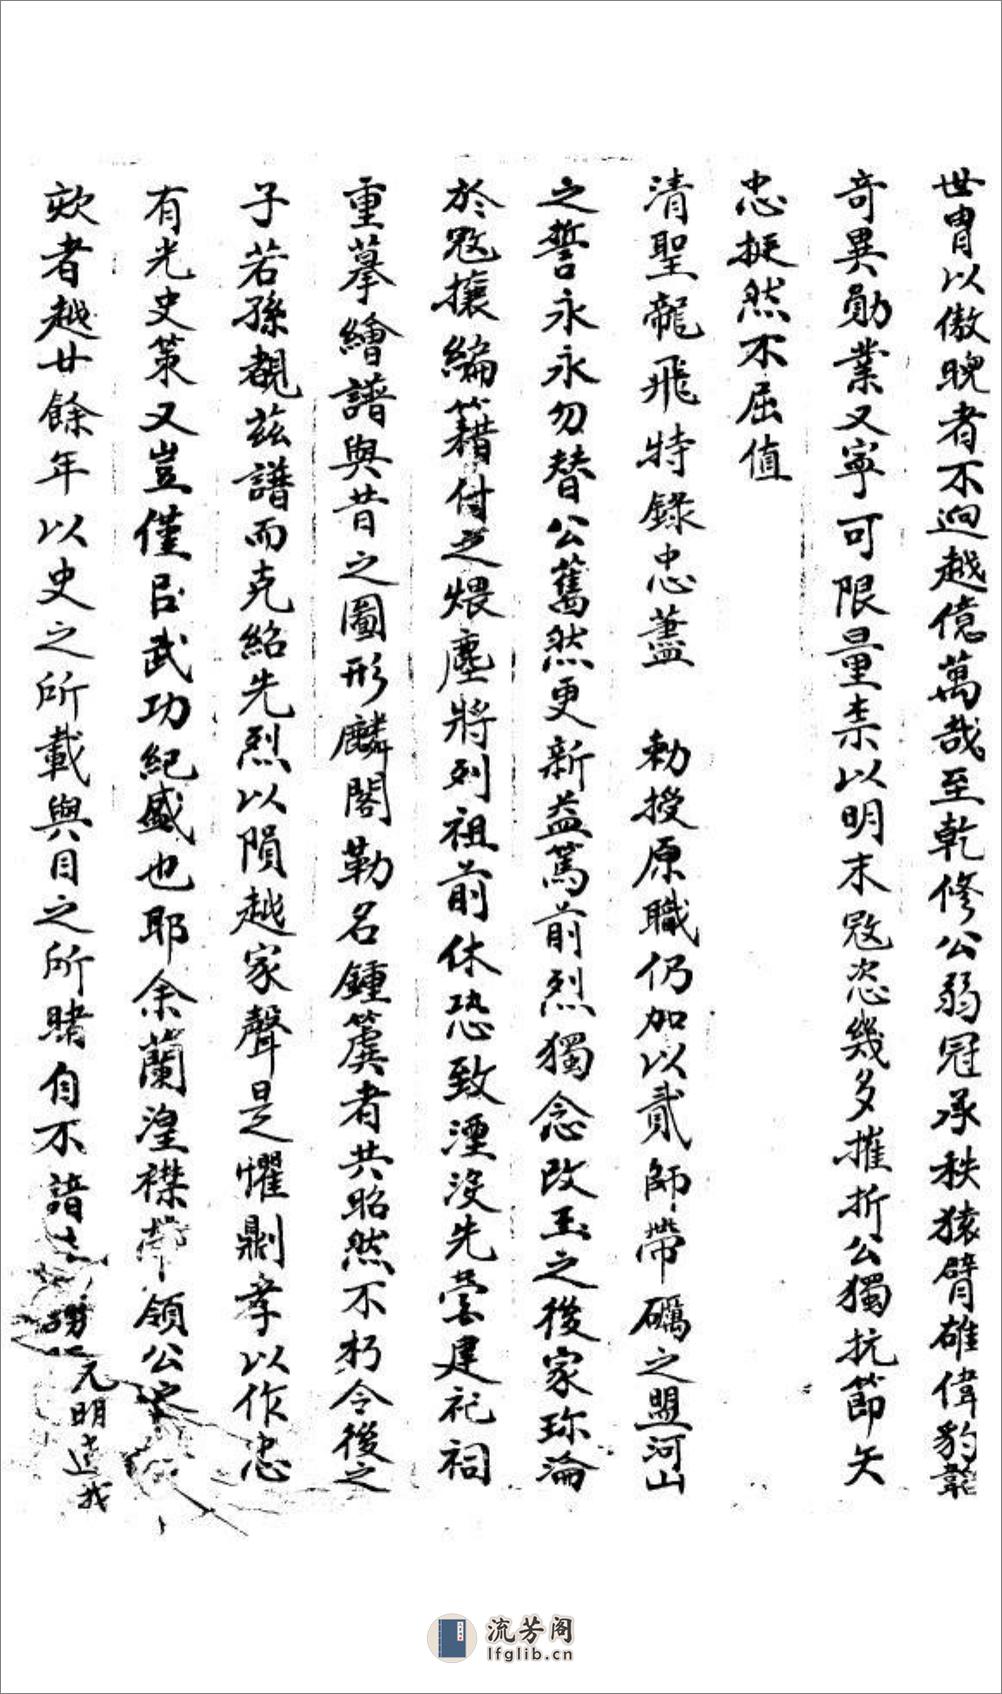 世胄以傲睨者不逈越億萬哉至乾修公弱冠承秩猿臂雄偉豹
奇異勛業又寧可限量柰以明末寇恣幾多摧折公獨抗節矢
忠挺然不屈值
清聖龍飛特錄忠藎 勅授原職仍加以貳師帶礪之盟河山
之誓永永勿替公蔫然更新益篤前烈獨念改玉之後家珎淪
於寇攘編籍付之煨塵將列祖前休恐致湮沒先嘗建祀祠
重摹繪譜與昔之圖形麟閣勒名鍾簴者共昭然不朽令後之
子若孫覩茲譜而克紹先烈以隕越家聲是懼劘孝以作忠
有光史策又豈僅㠯武功紀盛也耶余蘭湟襟帶領公
欵者越廿餘年以史之所載與目之所睹自不諳
元明迄我
流芳阁
lfglib.cn